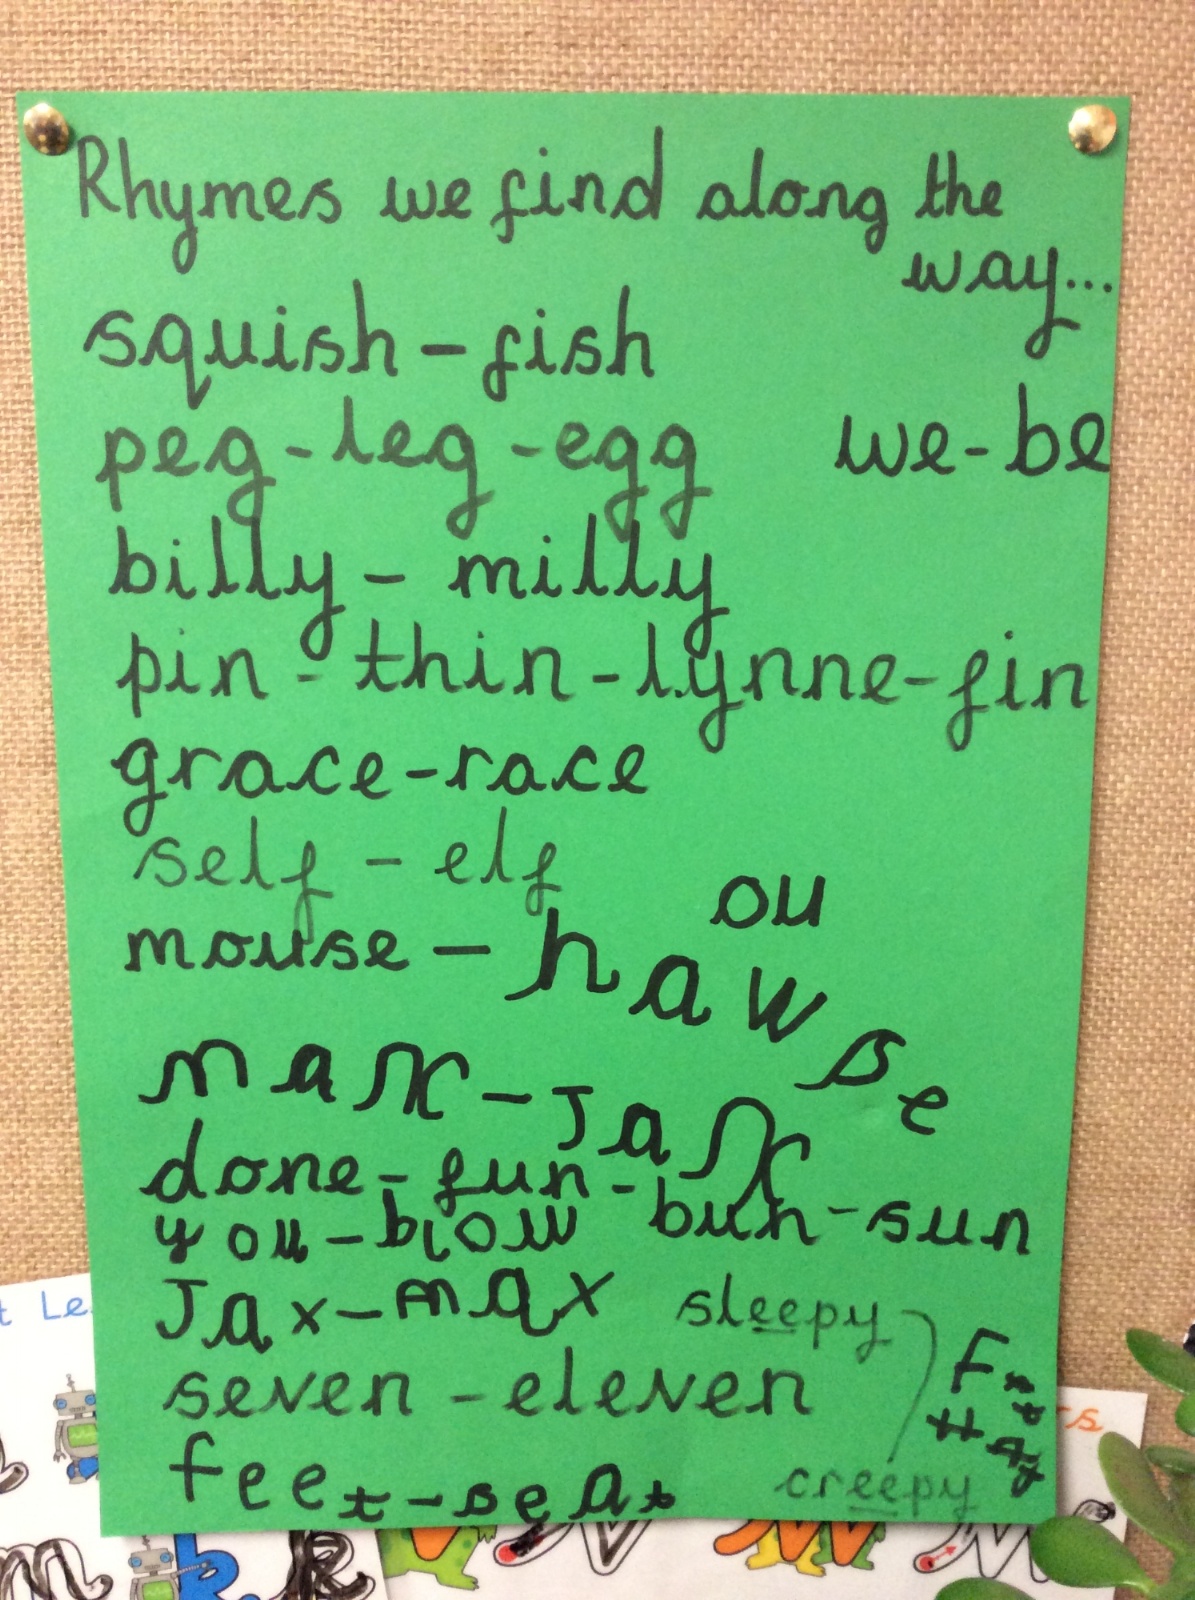 Rhymes we find along the
way...
squish - fish
peg - leg - egg
we - be
billy - milly
pin - thin - lynne - fin
grace - race
self - elf
ou
mouse - hawse
max - Jax
done - fun - bun - sun
you - blow
Jax - max
sleepy
seven - eleven
feet - seat
creepy